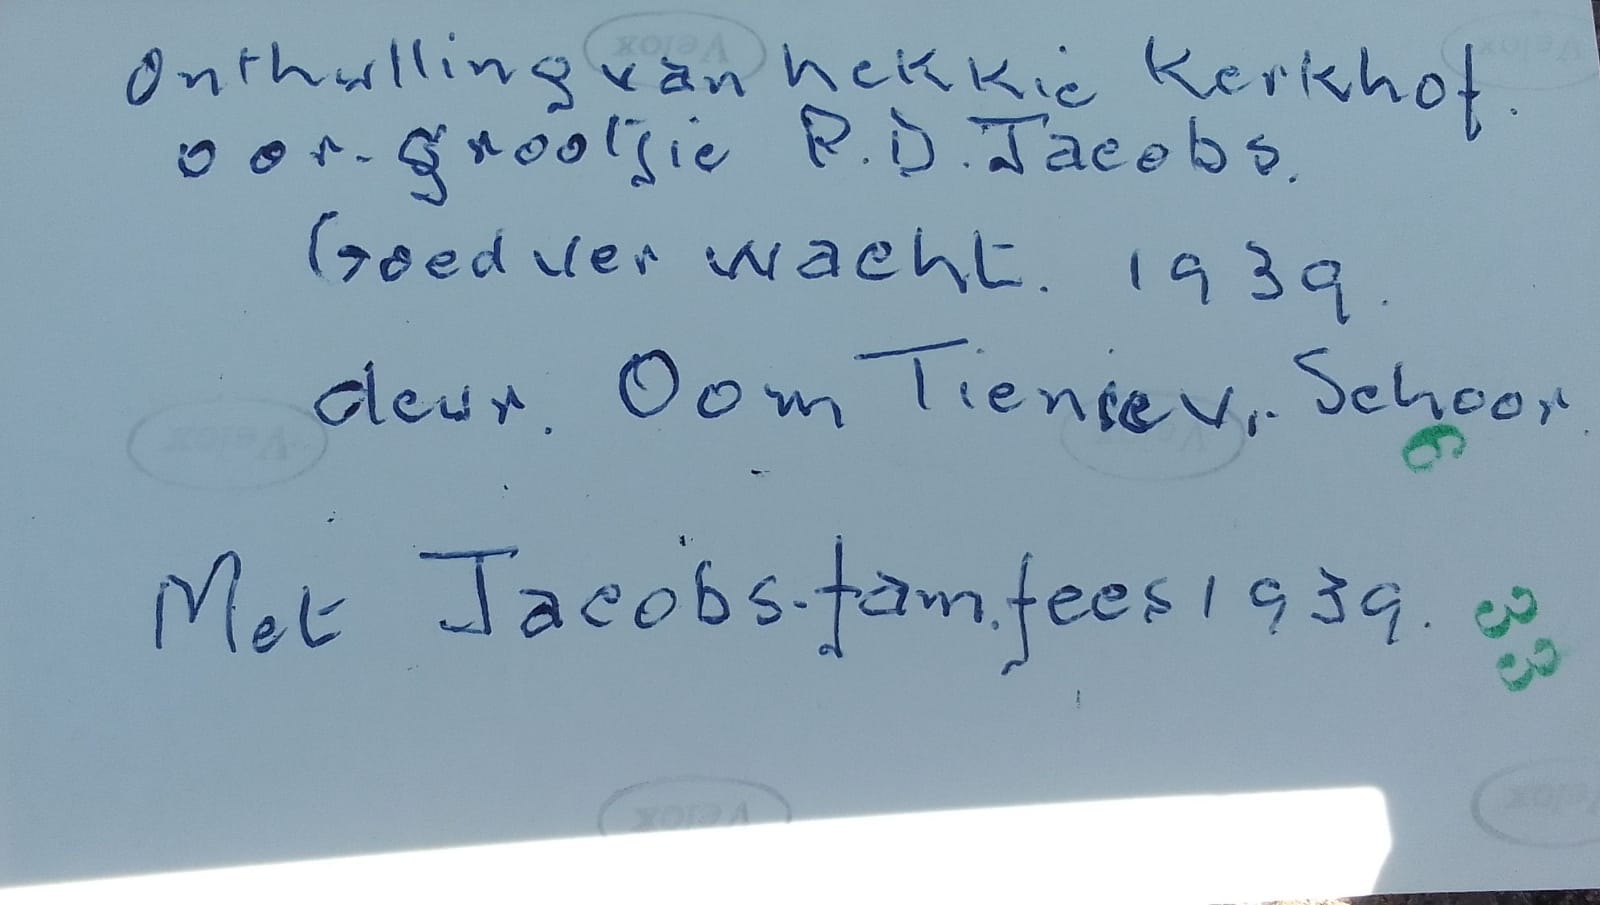 Onthulling van hekkie Kerkhof.
oor-grootjie P.D. Jacobs.
Goedverwacht. 1939.
deur. Oom Tienie v. Schoor.
6
Met Jacobs-fam.fees 1939.
33
Velox
Velox
Velox
Velox
Velox